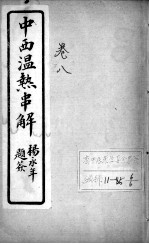 中西温熱串解
楊永年
題簽
卷八
11-86